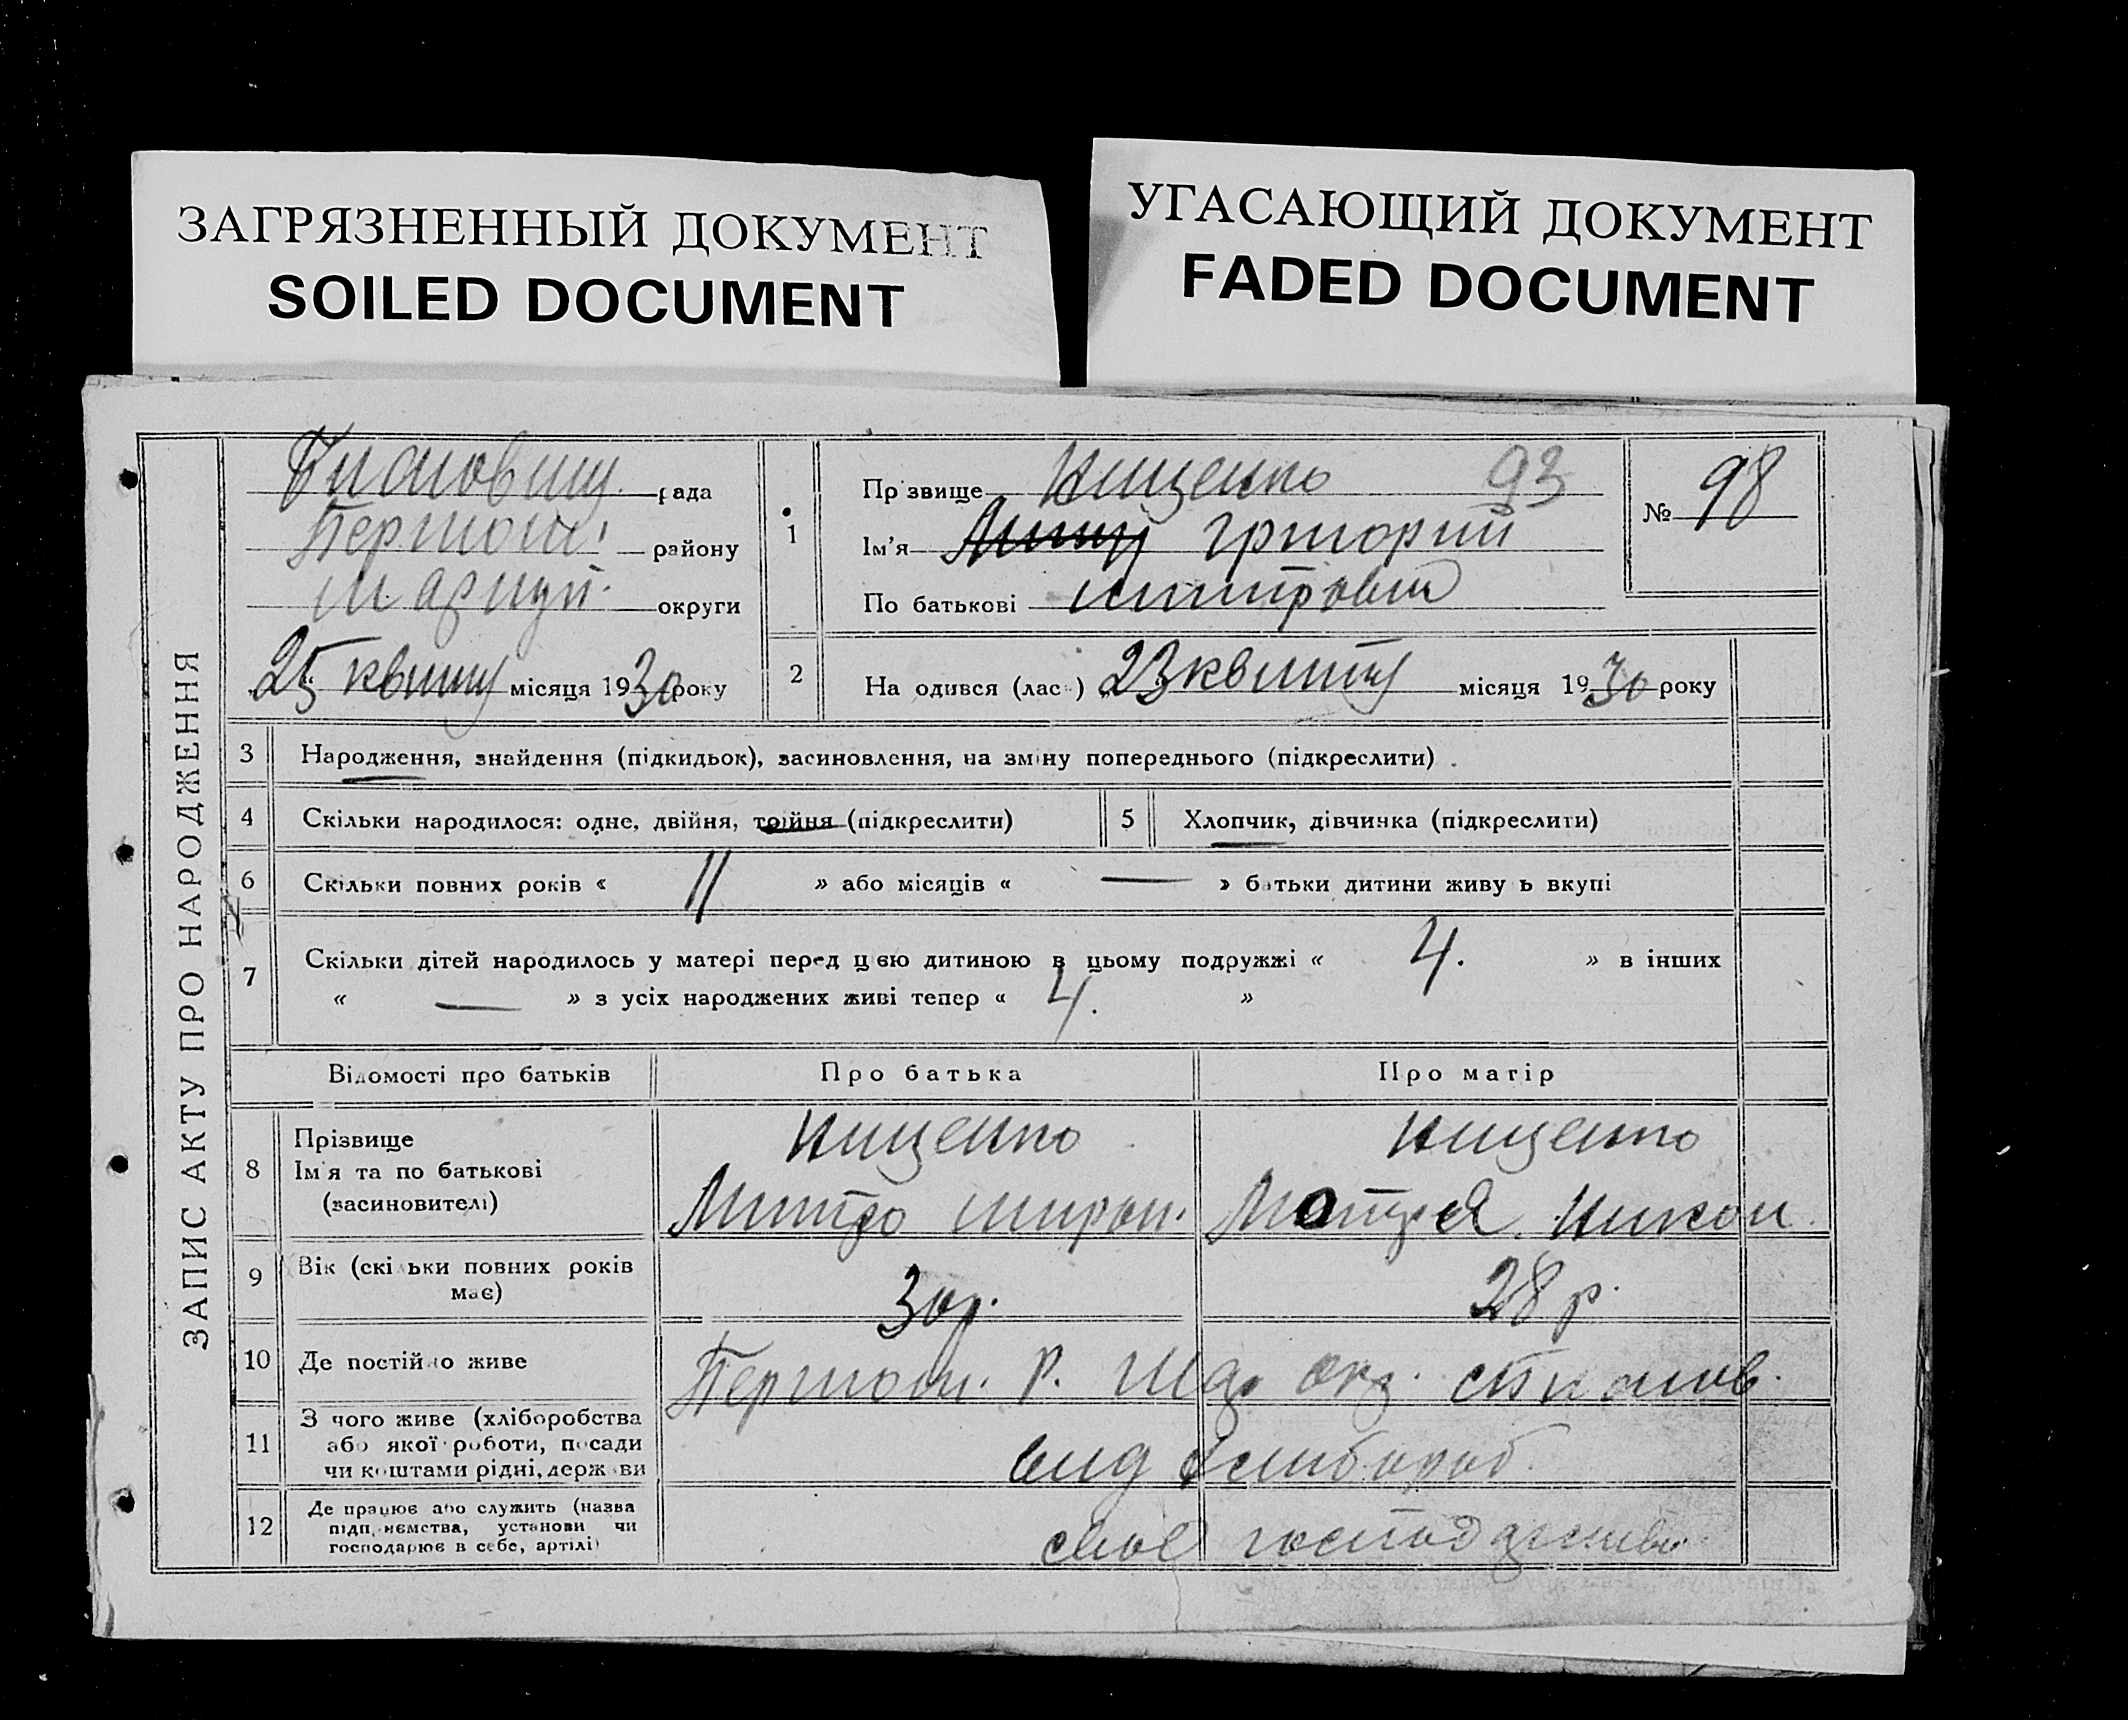 ЗАГРЯЗНЕННЫЙ ДОКУМЕНТ
SOILED DOCUMENT
УГАСАЮЩИЙ ДОКУМЕНТ
FADED DOCUMENT
ЗАПИС АКТУ ПРО НАРОДЖЕННЯ
рада
району
Маріуп. округи
25 квітня місяця 1930 року
1
Прізвище Нищенко 93
Ім'я Григорий
По батькові Митрович
№ 98
2 На одився (лась) 23 квитня місяця 1930 року
3 Народження, знайдення (підкидьок), засиновлення, на зміну попереднього (підкреслити)
4 Скільки народилося: одне, двійня, трійня (підкреслити)
5 Хлопчик, дівчинка (підкреслити)
6 Скільки повних років « 11 » або місяців « — » батьки дитини живу ь вкупі
7 Скільки дітей народилось у матері перед цією дитиною в цьому подружжі « 4. » в інших
« — » з усіх народжених живі тепер « 4. »
Відомості про батьків Про батька Про матір
8 Прізвище
Ім'я та по батькові
(засиновителі)
Нищенко
Митро Мирон.
Нищенко
Никон.
9 Вік (скільки повних років
має)
30 р. 28 р.
10 Де постійно живе
11 З чого живе (хліборобства
або якої роботи, посади
чи коштами рідні, держави
вид хлибороб.
12 Де працює або служить (назва
підприємства, установи чи
господарює в себе, артілі)
своє господарство